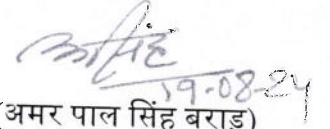 19-08-24
(अमर पाल सिंह बराड)